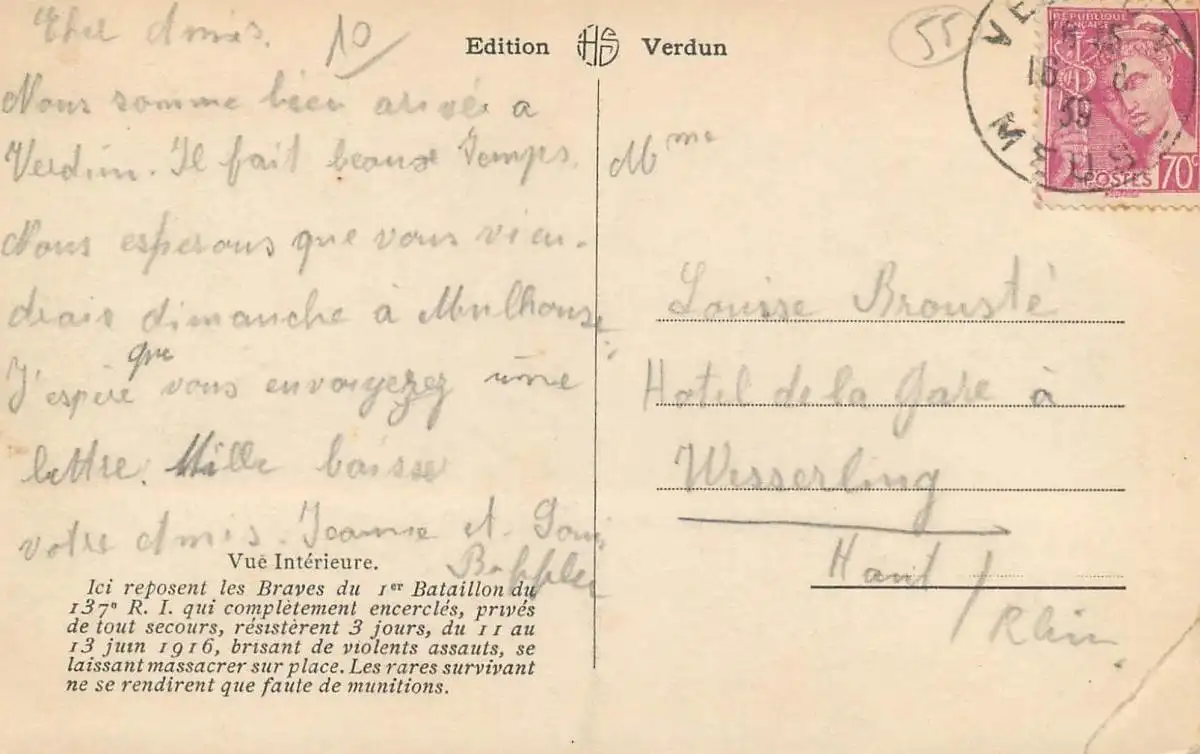 Cher Amis.
10
Edition HS Verdun
55
Nous somme bien arivée a
Verdun. Il fait beaux Temps.
Nous esperons que vous vien-
drais dimanche à Mulhouse.
J'espère que vous envoyerez une
lettre. Mille baisse
votre Amis. Jeanne et Louis
Vue Intérieure.
Ici reposent les Braves du 1er Bataillon du
137e R. I. qui complètement encerclés, privés
de tout secours, résistèrent 3 jours, du 11 au
13 juin 1916, brisant de violents assauts, se
laissant massacrer sur place. Les rares survivant
ne se rendirent que faute de munitions.
RÉPUBLIQUE
FRANÇAISE
POSTES 70c
16
39
MEUSE
Mme
Louisse Brousté
Hotel de la Gare à
Wesserling
Haut /
Rhin.